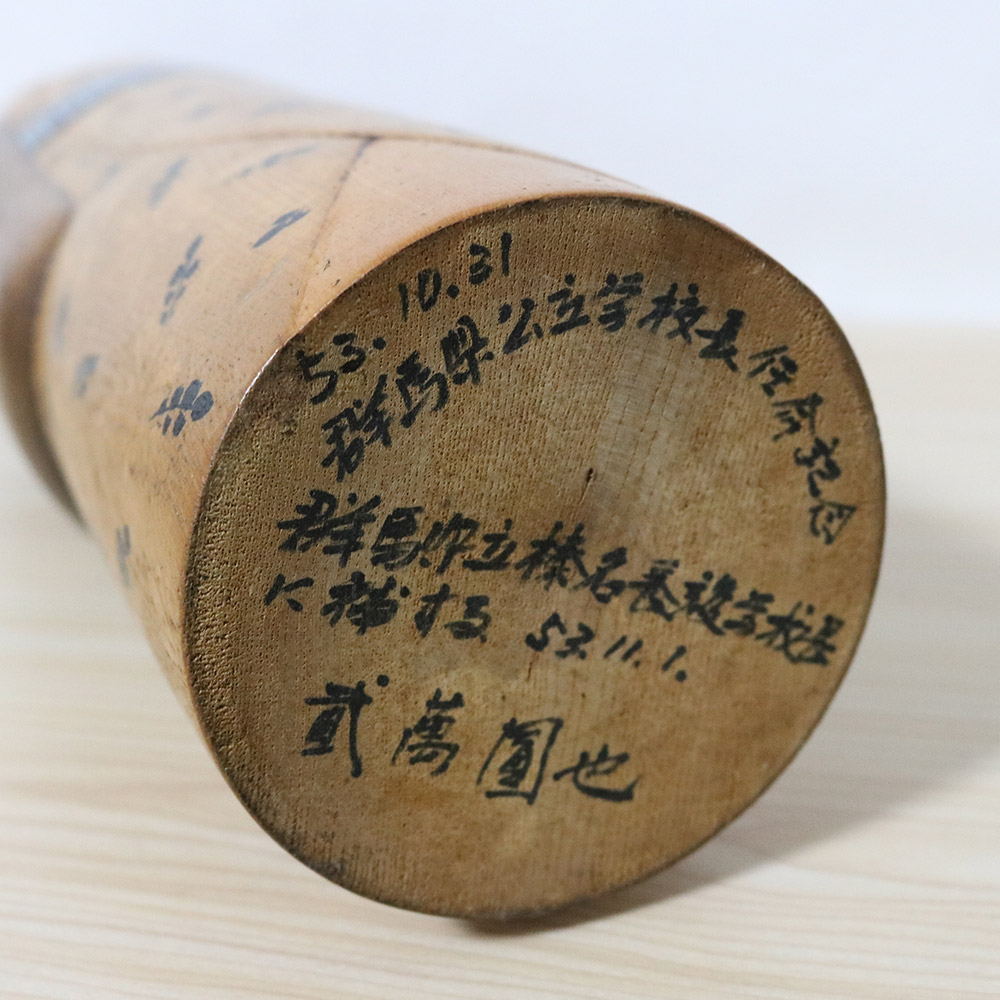 53. 10.31
群馬県公立学校長任命記図
群馬県立榛名養護学校長
に補する 53.11.1.
貳萬圓也